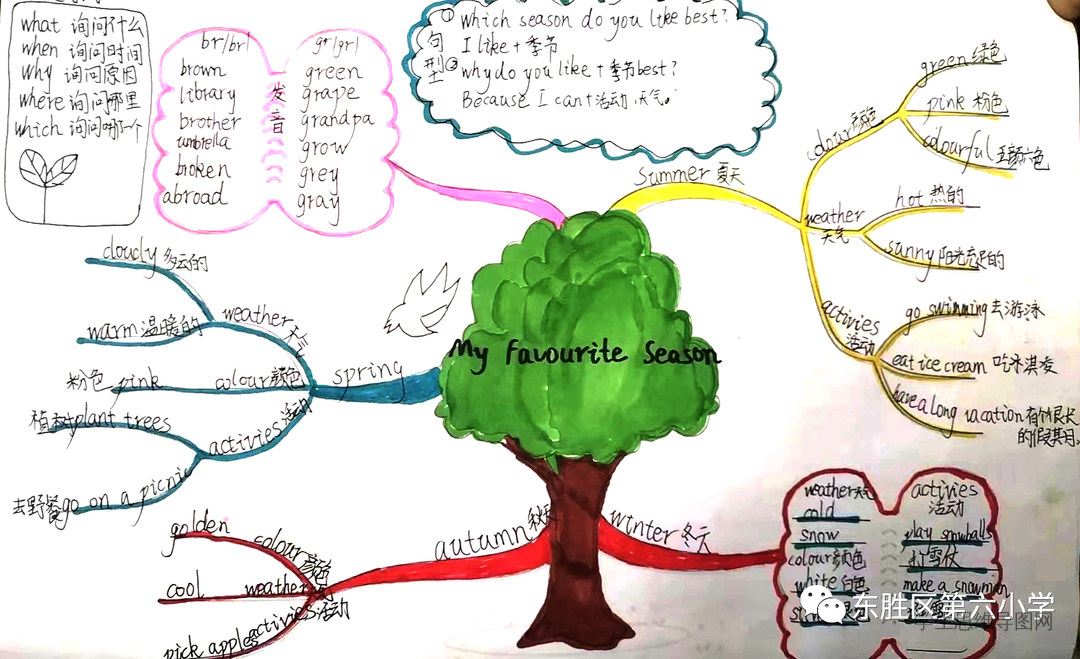 what 询问什么
when 询问时间
why 询问原因
where 询问哪里
which 询问哪一个
br/br/
brown
library
brother
umbrella
broken
abroad
发音
gr/gr/
green
grape
grandpa
grow
grey
gray
句型
① which season do you like best?
I like + 季节
② why do you like + 季节 best?
Because I can + 活动 .天气。
summer 夏天
colour 颜色
green 绿色
pink 粉色
colourful
weather 天气
hot 热的
sunny 阳光充足的
activies 活动
go swimming 去游泳
eat ice cream 吃冰淇凌
have a long vacation 有个很长
的假期
My Favourite Season
spring
weather 天气
cloudy 多云的
warm 温暖的
colour 颜色
粉色 pink
activies 活动
植树 plant trees
去野餐 go on a picnic
autumn 秋天
colour 颜色
golden
weather
cool
activies 活动
pick apples
winter 冬天
weather 天气
cold
snow
colour 颜色
white 白色
activies
活动
play snowballs
打雪仗
make a snowman
东胜区第六小学
学生思维导图网